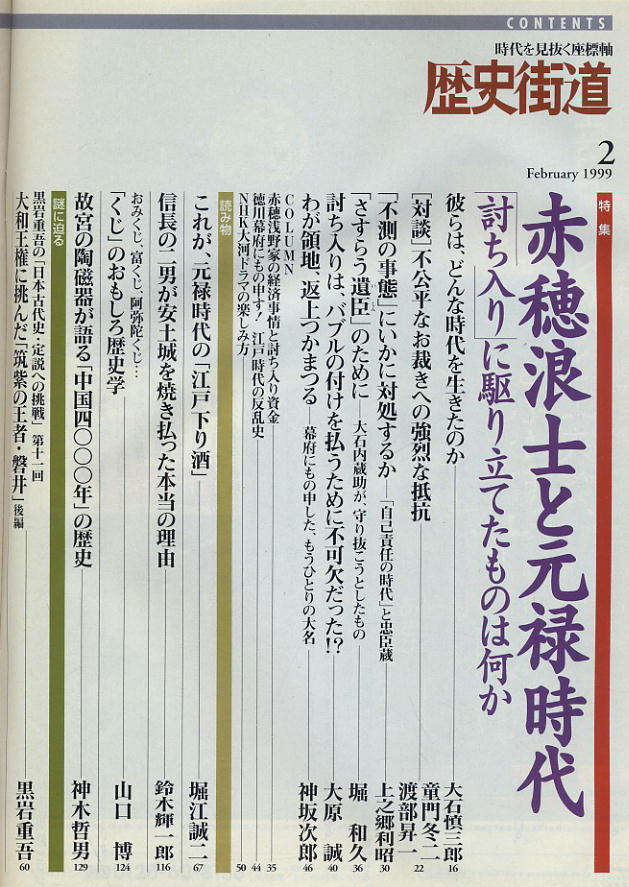 CONTENTS
時代を見抜く座標軸
歴史街道
2
February 1999
特集
赤穂浪士と元禄時代
討ち入りに駆り立てたものは何か
彼らは、どんな時代を生きたのか 大石慎三郎 16
[対談]不公平なお裁きへの強烈な抵抗 童門冬二 渡部昇一 22
「不測の事態」にいかに対処するか―「自己責任の時代」と忠臣蔵 上之郷利昭 30
「さすらう遺臣」のために―大石内蔵助が、守り抜こうとしたもの 堀 和久 36
討ち入りは、バブルの付けを払うために不可欠だった!? 大原 誠 40
わが領地、返上つかまつる―幕府にもの申した、もうひとりの大名 神坂次郎 46
COLUMN
赤穂浅野家の経済事情と討ち入り資金 35
徳川幕府にもの申す! 江戸時代の反乱史 44
NHK大河ドラマの楽しみ方 50
読み物
これが、元禄時代の「江戸下り酒」 堀江誠二 67
信長の二男が安土城を焼き払った本当の理由 鈴木輝一郎 116
おみくじ、富くじ、阿弥陀くじ…
「くじ」のおもしろ歴史学 山口 博 124
故宮の陶磁器が語る「中国四〇〇〇年」の歴史 神木哲男 129
謎に迫る
黒岩重吾の「日本古代史・定説への挑戦」 第十一回
大和王権に挑んだ「筑紫の王者・磐井」後編 黒岩重吾 60